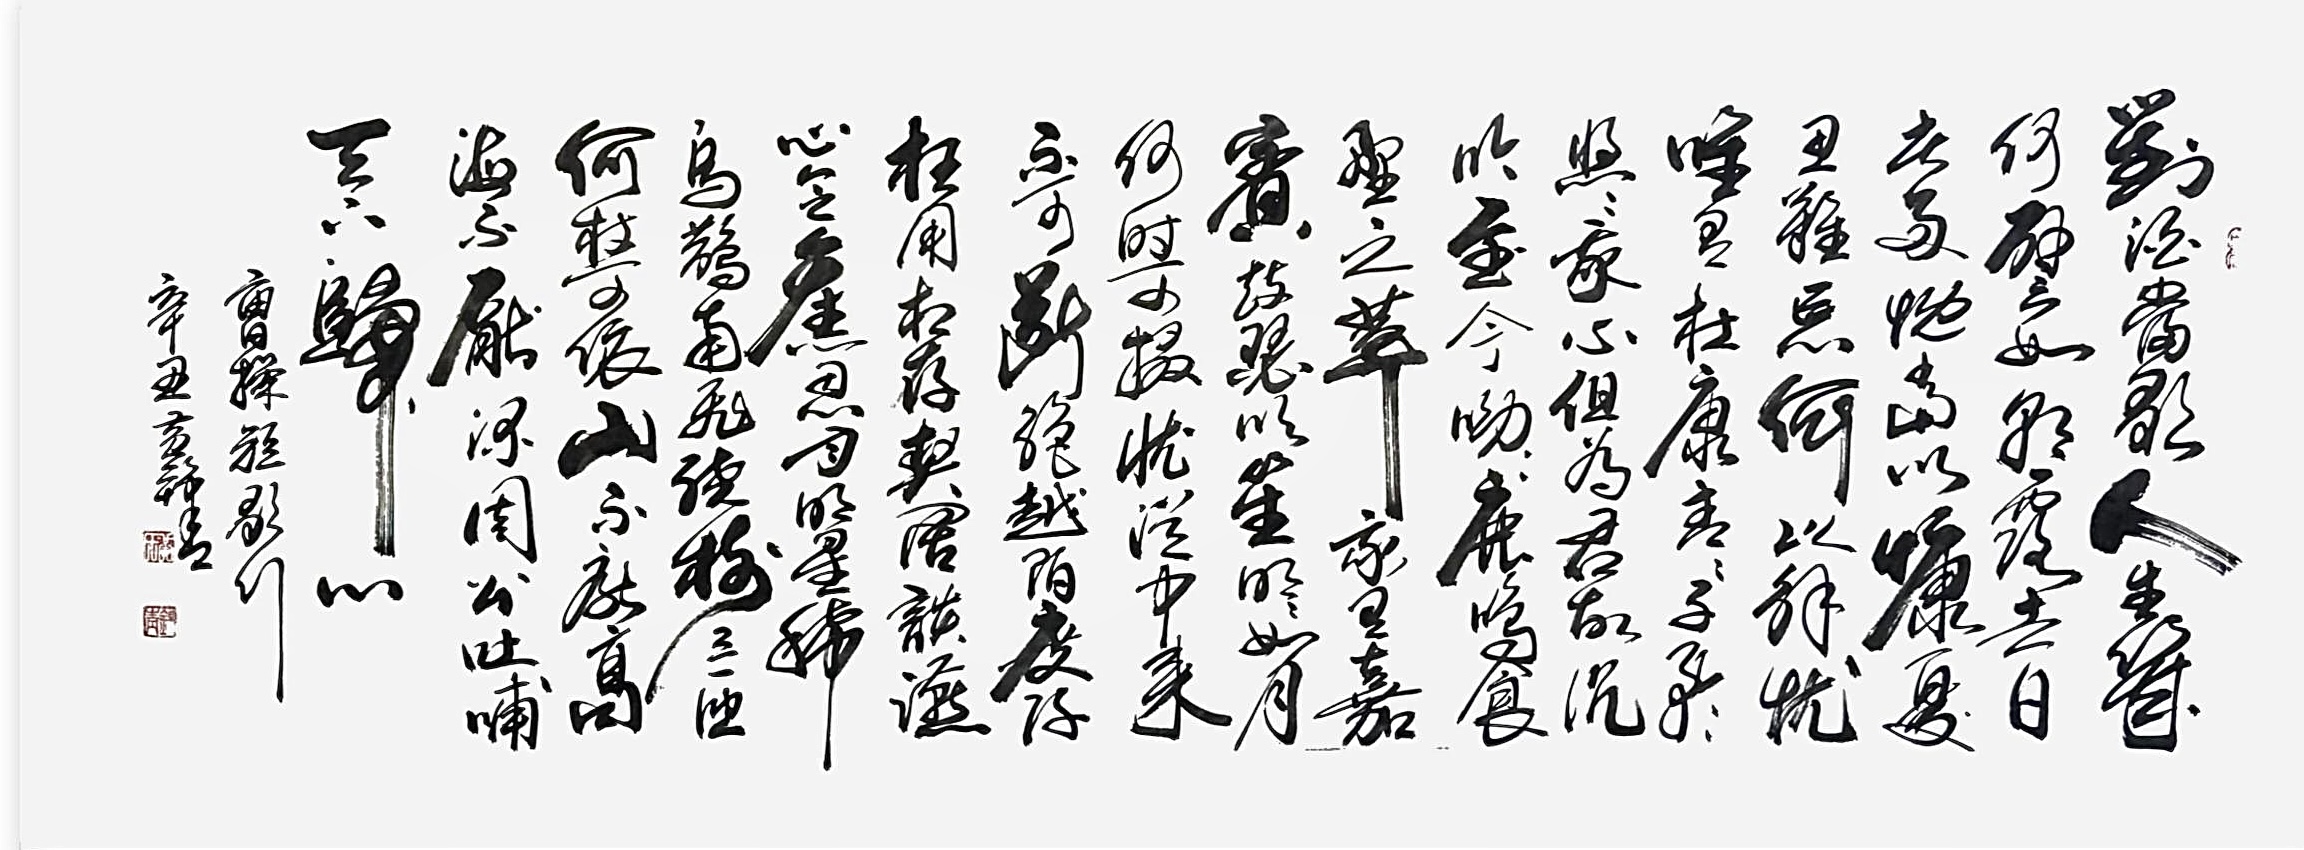 對酒當歌人生幾
何譬如朝露去日
苦多慨當以慷憂
思難忘何以解忧
唯有杜康青々子衿
悠々我心但為君故沉
吟至今呦々鹿鳴食
野之苹我有嘉
賓鼓瑟吹笙明々如月
何时可掇忧從中来
不可斷絶越陌度阡
枉用相存契闊談讌
心念舊恩月明星稀
烏鵲南飛繞樹三匝
何枝可依山不厭高
海不厭深周公吐哺
天下歸心
曹操短歌行
辛丑